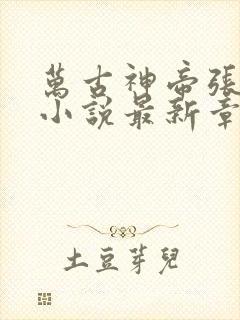 萬古神帝張
小說最新章
土豆芽兒